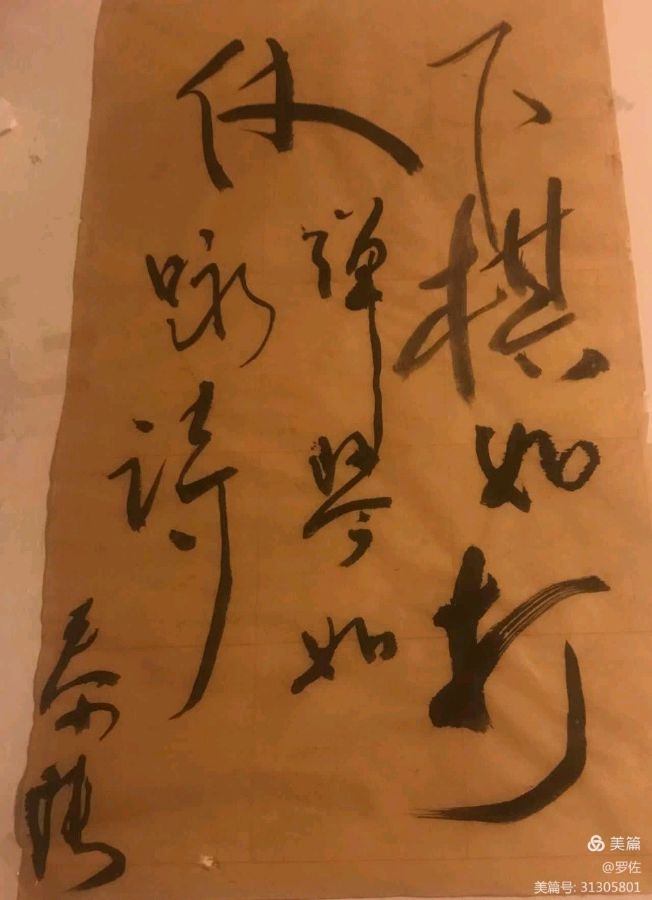 下棋如打
仗弹琴如
咏诗
美篇
@罗佐
美篇号: 31305801